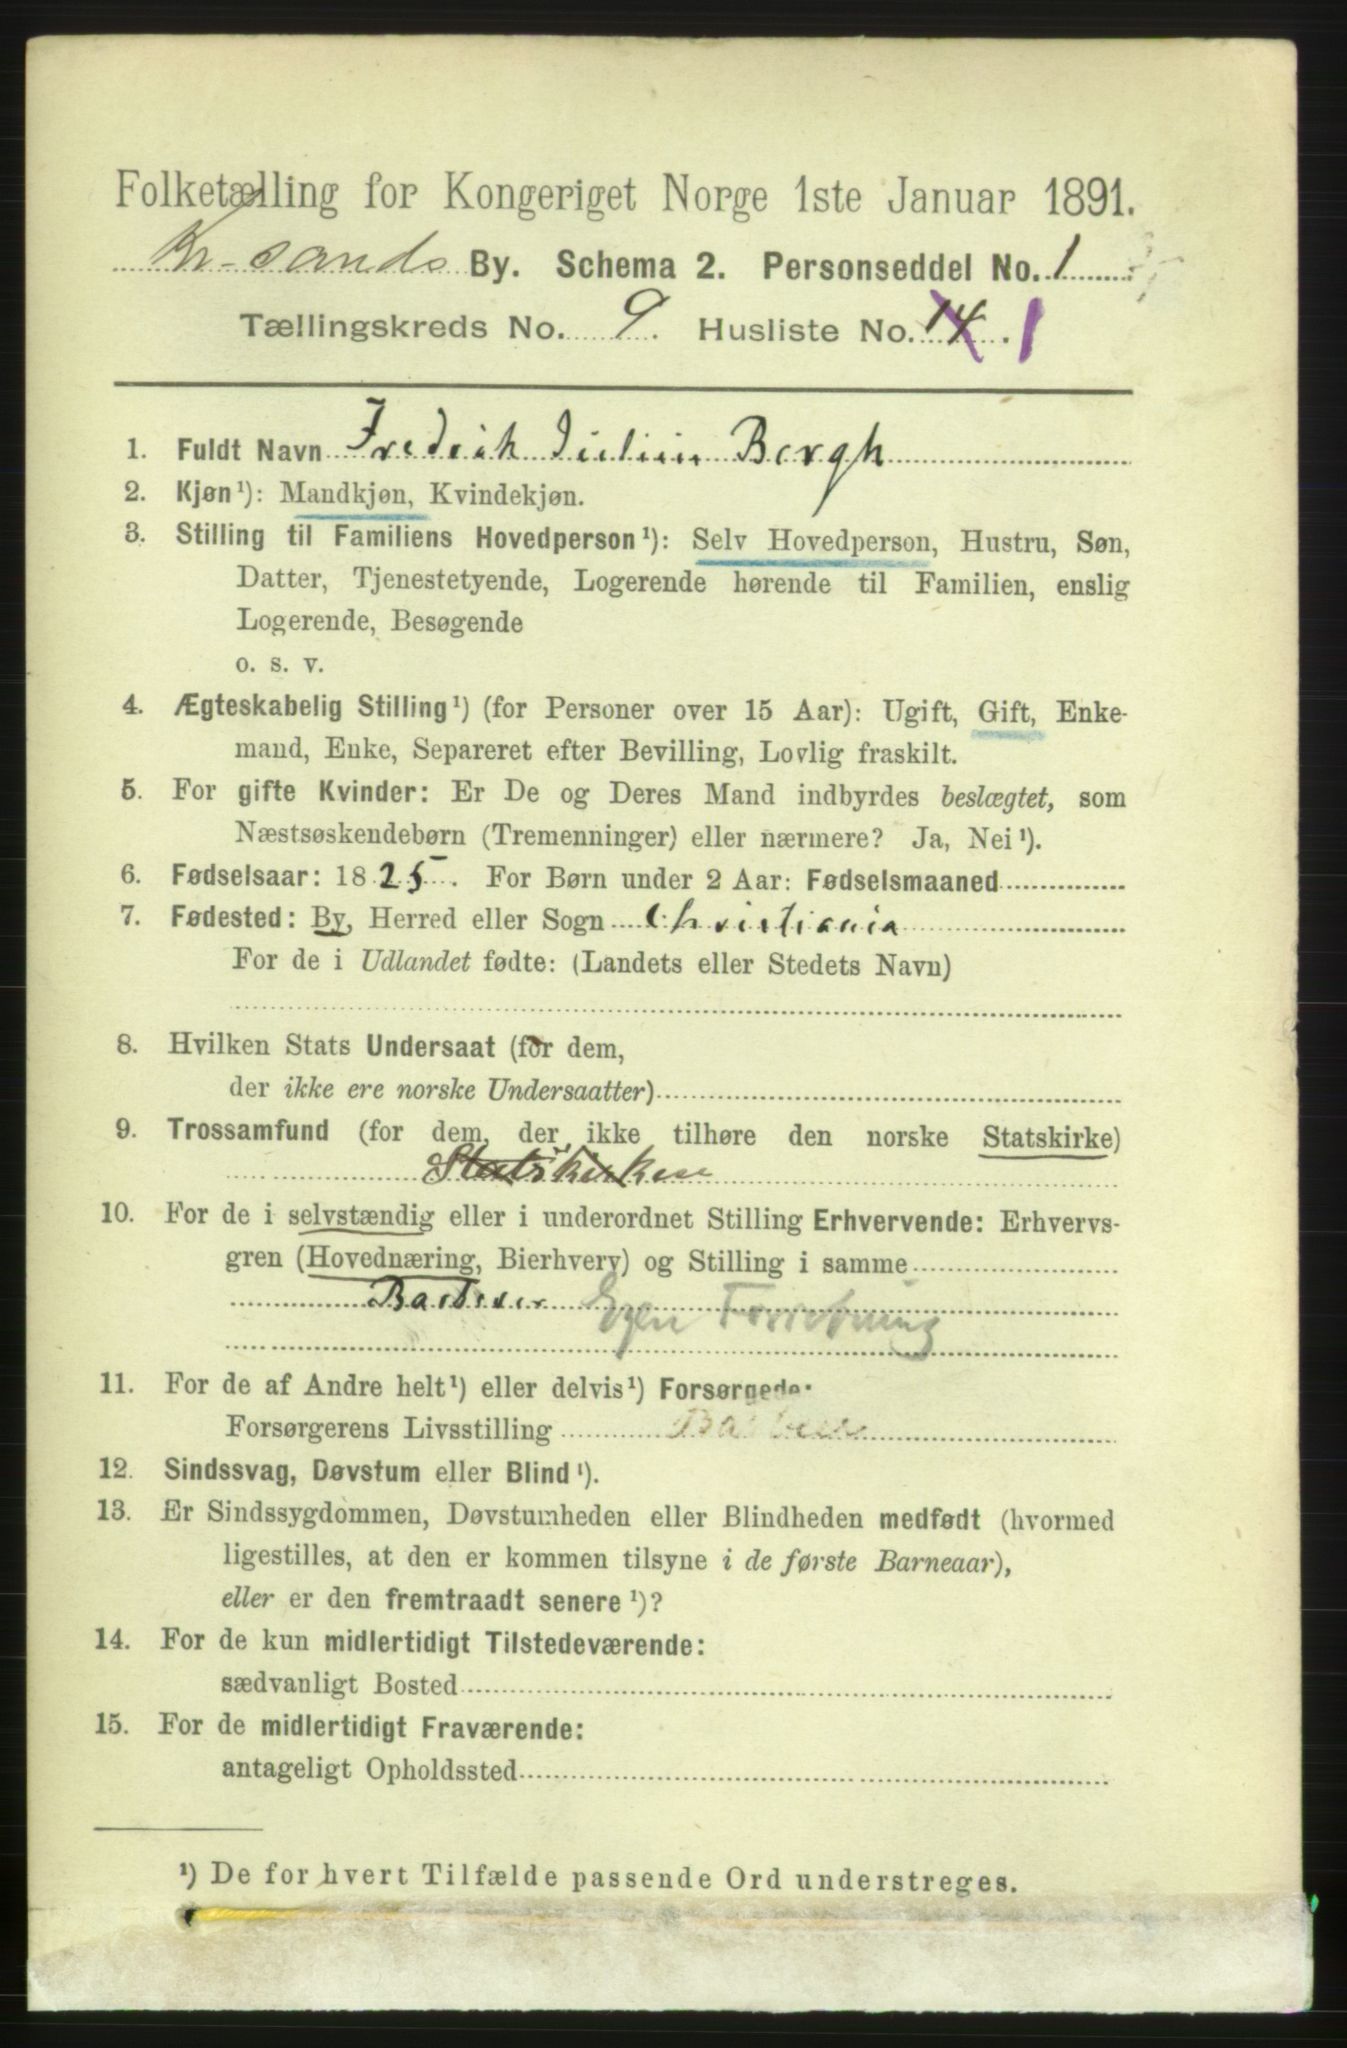 Folketælling for Kongeriget Norge 1ste Januar 1891.
Kr-sands By. Schema 2. Personseddel No. 1
Tællingskreds No. 9. Husliste No. 14. 1
1. Fuldt Navn Fredrik Julius Bergh
2. Kjøn¹): Mandkjøn, Kvindekjøn.
3. Stilling til Familiens Hovedperson¹): Selv Hovedperson, Hustru, Søn,
Datter, Tjenestetyende, Logerende hørende til Familien, enslig
Logerende, Besøgende
o. s. v.
4. Ægteskabelig Stilling¹) (for Personer over 15 Aar): Ugift, Gift, Enke-
mand, Enke, Separeret efter Bevilling, Lovlig fraskilt.
5. For gifte Kvinder: Er De og Deres Mand indbyrdes beslægtet, som
Næstsøskendebørn (Tremenninger) eller nærmere? Ja, Nei¹).
6. Fødselsaar: 1825. For Børn under 2 Aar: Fødselsmaaned
7. Fødested: By, Herred eller Sogn Christiania
For de i Udlandet fødte: (Landets eller Stedets Navn)
8. Hvilken Stats Undersaat (for dem,
der ikke ere norske Undersaatter)
9. Trossamfund (for dem, der ikke tilhøre den norske Statskirke)
Statskirken
10. For de i selvstændig eller i underordnet Stilling Erhvervende: Erhvervs-
gren (Hovednæring, Bierhverv) og Stilling i samme
Barberer Egen Forretning
11. For de af Andre helt¹) eller delvis¹) Forsørgede:
Forsørgerens Livsstilling
12. Sindssvag, Døvstum eller Blind¹).
13. Er Sindssygdommen, Døvstumheden eller Blindheden medfødt (hvormed
ligestilles, at den er kommen tilsyne i de første Barneaar),
eller er den fremtraadt senere¹)?
14. For de kun midlertidigt Tilstedeværende:
sædvanligt Bosted
15. For de midlertidigt Fraværende:
antageligt Opholdssted
¹) De for hvert Tilfælde passende Ord understreges.